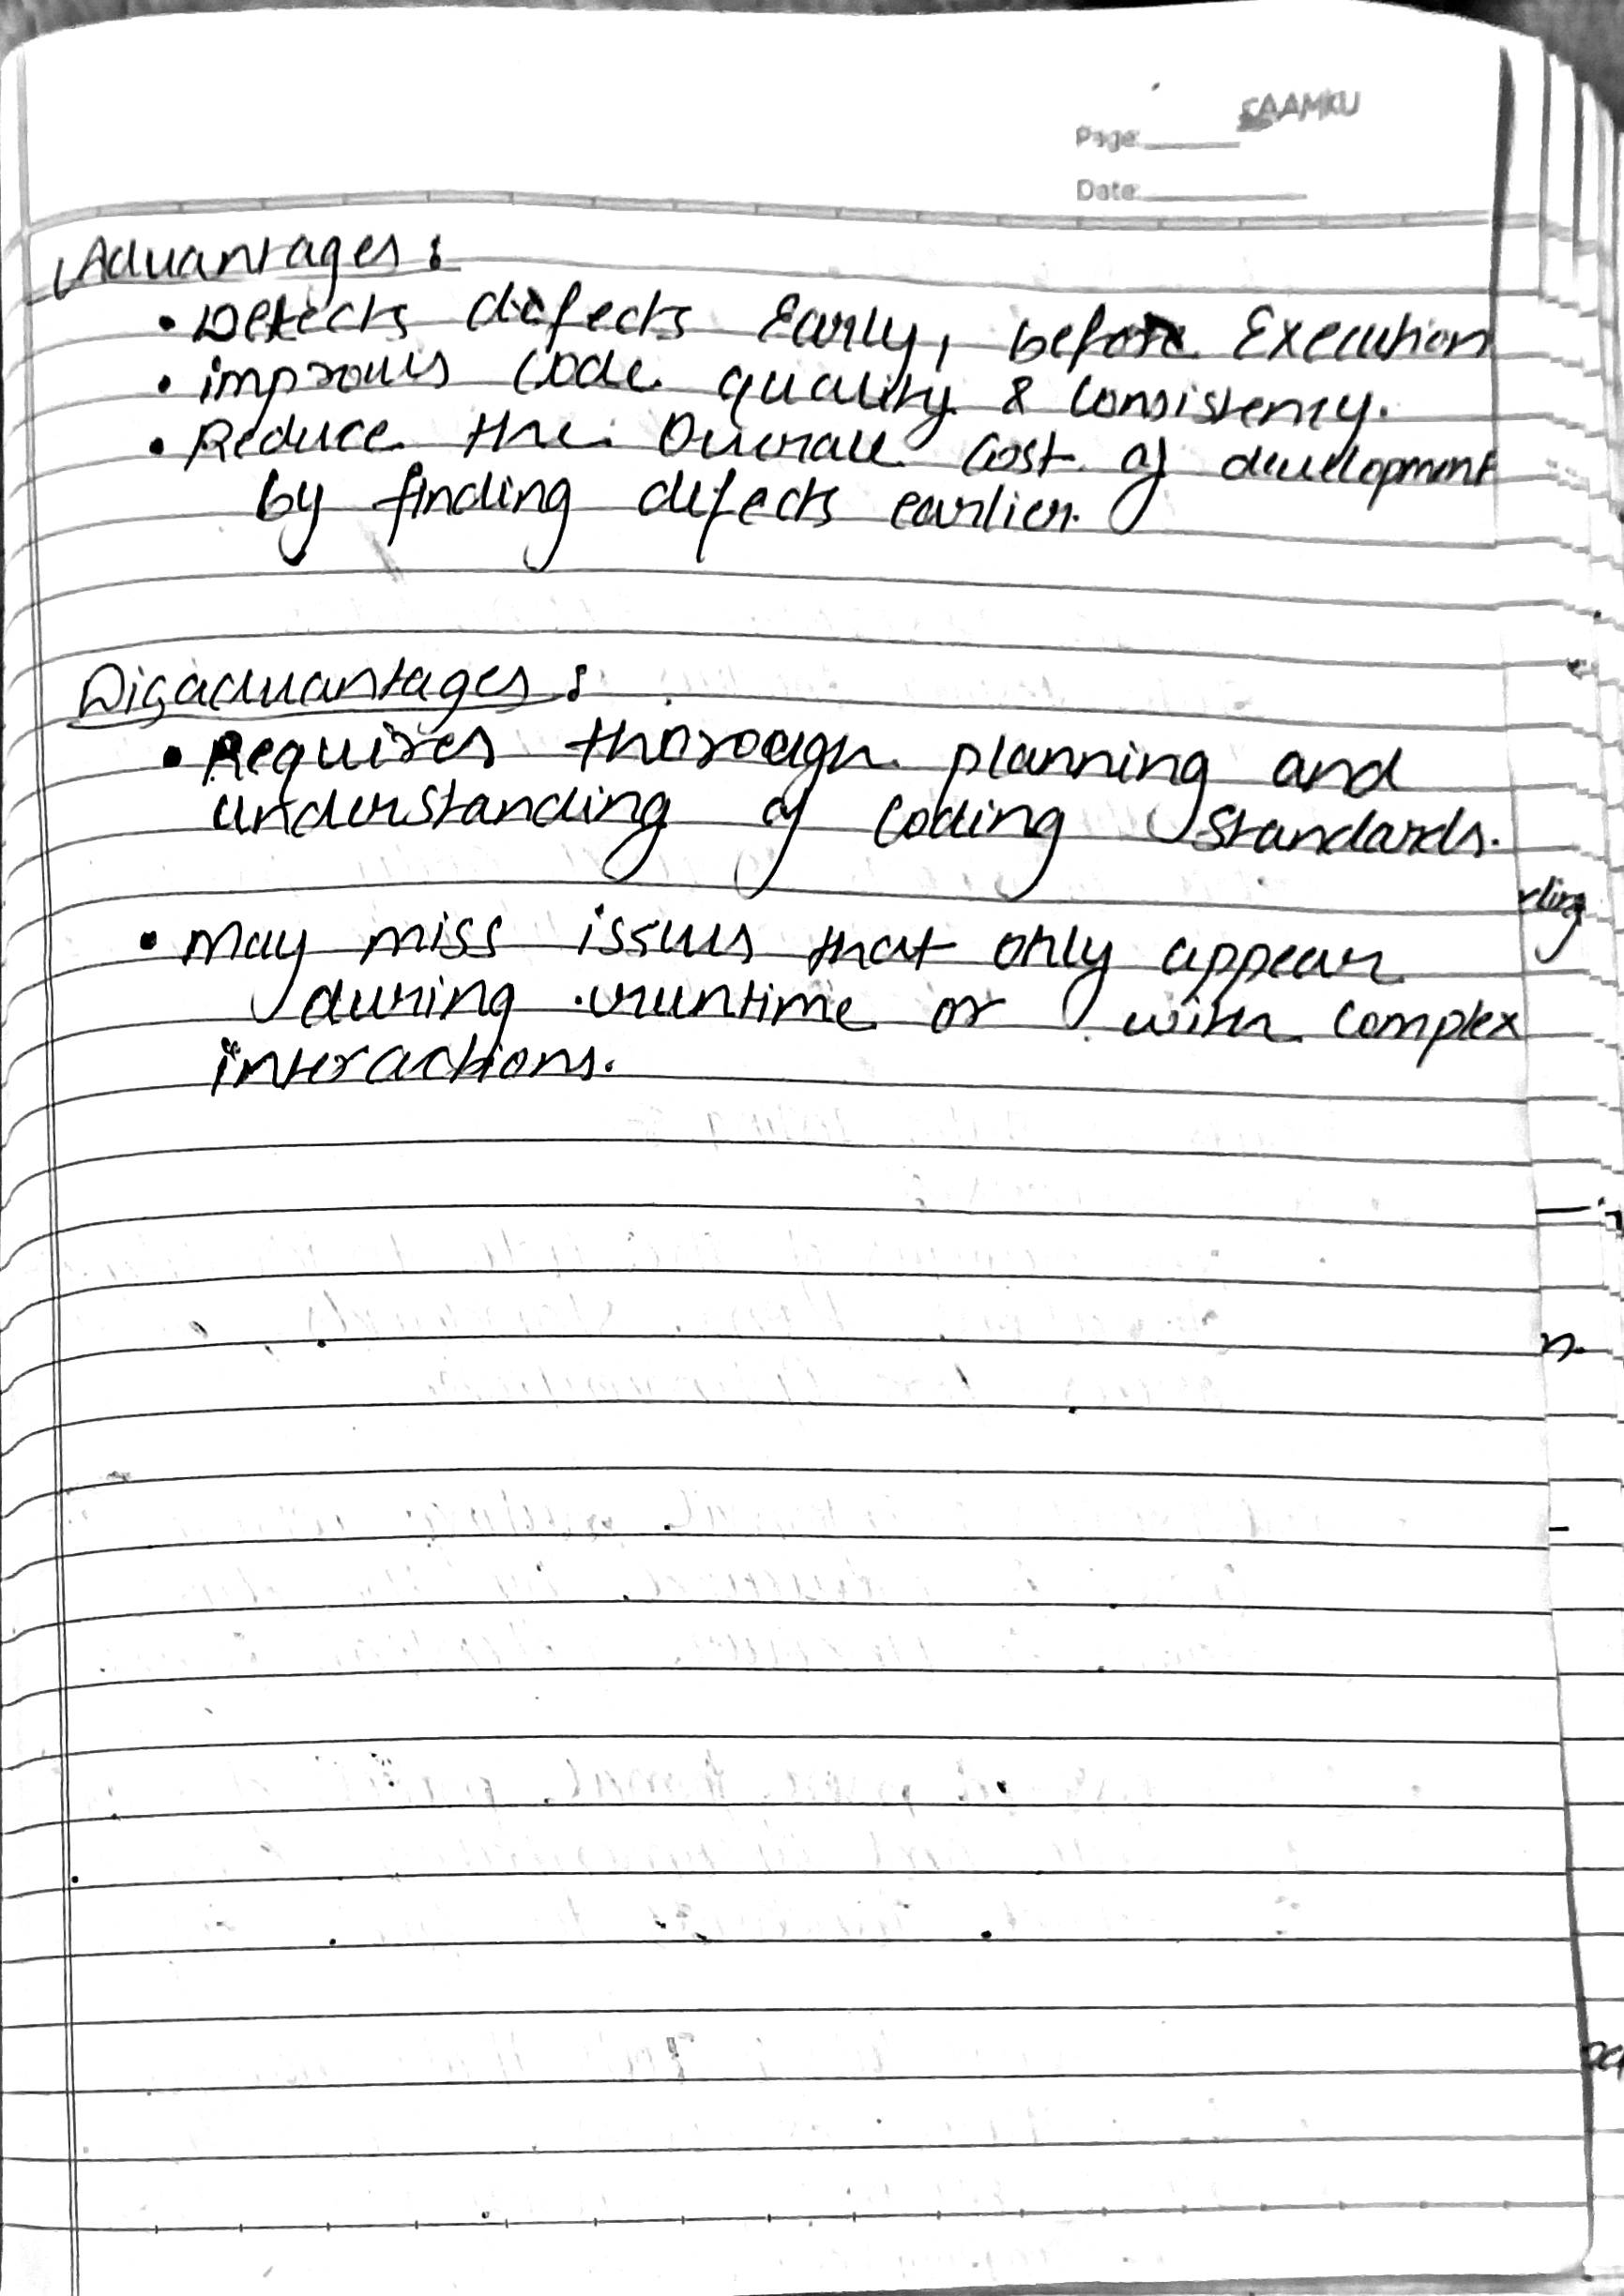 SAAMKU
Page:
Date:
Advantages :
• Detects defects Early, before Execution
• improves Code quality & Consistency.
• Reduce the Overall Cost of development
by finding defects earlier.
Disadvantages :
• Requires thorough planning and
understanding of Coding Standards.
• May miss issues that only appear
during runtime or with Complex
interactions.